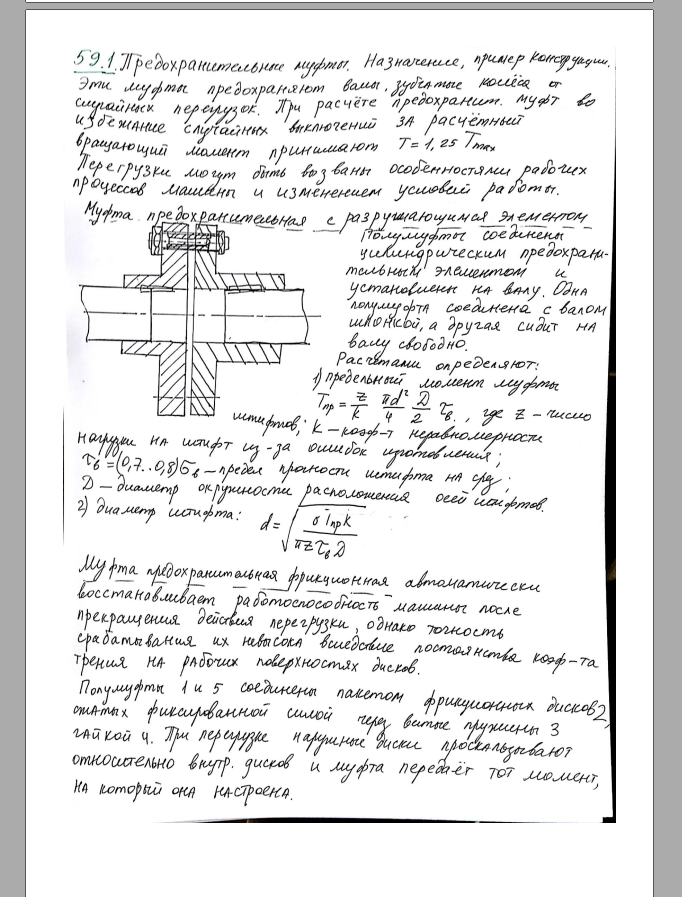 59.1. Предохранительные муфты. Назначение, пример конструкции.
Эти муфты предохраняют валы, зубчатые колёса от
случайных перегрузок. При расчёте предохранит. муфт во
избежание случайных выключений за расчётный
вращающий момент принимают T = 1,25 Tmax
Перегрузки могут быть вызваны особенностями рабочих
процессов машины и изменением условий работы.
Муфта предохранительная с разрушающимся элементом
Полумуфты соединены
цилиндрическим предохрани-
тельным элементом и
установлены на валу. Одна
полумуфта соединена с валом
шпонкой, а другая сидит на
валу свободно.
Расчетами определяют:
1) предельный момент муфты
Tпр = z/k πd²/4 D/2 τв, где z – число
штифтов; k – коэф-т неравномерности
нагрузки на штифт из-за ошибок изготовления;
τв = (0,7..0,8)σв – предел прочности штифта на срез;
D – диаметр окружности расположения осей штифтов.
2) диаметр штифта: d = √(8 Tпр k / πzτвD)
Муфта предохранительная фрикционная автоматически
восстанавливает работоспособность машины после
прекращения действия перегрузки, однако точность
срабатывания их невысока вследствие постоянства коэф-та
трения на рабочих поверхностях дисков.
Полумуфты 1 и 5 соединены пакетом фрикционных дисков 2,
сжатых фиксированной силой через витые пружины 3
гайкой 4. При перегрузке наружные диски проскальзывают
относительно внутр. дисков и муфта передаёт тот момент,
на который она настроена.